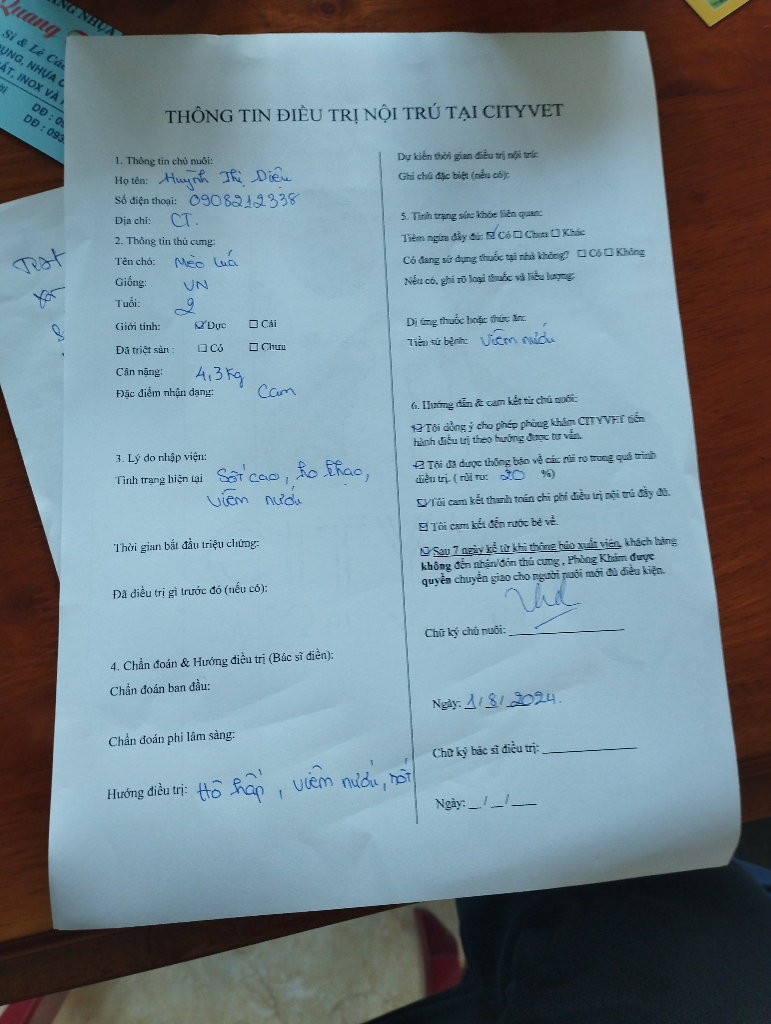 Quang
Sỉ & Lẻ Các
DĐ : 093
THÔNG TIN ĐIỀU TRỊ NỘI TRÚ TẠI CITYVET
1. Thông tin chủ nuôi:
Họ tên: Huỳnh Thị Diệu
Số điện thoại: 0908212338
Địa chỉ: CT.
2. Thông tin thú cưng:
Tên chó: Mèo Luá
Giống: VN
Tuổi: 2
Giới tính: ☑ Đực ☐ Cái
Đã triệt sản : ☐ Có ☐ Chưa
Cân nặng: 4,3 Kg
Đặc điểm nhận dạng: Cam
3. Lý do nhập viện:
Tình trạng hiện tại Sốt cao, ho khạc,
viêm nướu
Thời gian bắt đầu triệu chứng:
Đã điều trị gì trước đó (nếu có):
4. Chẩn đoán & Hướng điều trị (Bác sĩ điền):
Chẩn đoán ban đầu:
Chẩn đoán phi lâm sàng:
Hướng điều trị: Hô hấp, viêm nướu, sốt
Dự kiến thời gian điều trị nội trú:
Ghi chú đặc biệt (nếu có):
5. Tình trạng sức khỏe liên quan:
Tiêm ngừa đầy đủ: ☑ Có ☐ Chưa ☐ Khác
Có đang sử dụng thuốc tại nhà không? ☐ Có ☐ Không
Nếu có, ghi rõ loại thuốc và liều lượng:
Dị ứng thuốc hoặc thức ăn:
Tiền sử bệnh: Viêm nướu
6. Hướng dẫn & cam kết từ chủ nuôi:
☑ Tôi đồng ý cho phép phòng khám CITYVET tiến
hành điều trị theo hướng được tư vấn.
☑ Tôi đã được thông báo về các rủi ro trong quá trình
điều trị. ( rủi ro: 20 %)
☑ Tôi cam kết thanh toán chi phí điều trị nội trú đầy đủ.
☑ Tôi cam kết đến rước bé về.
☑ Sau 7 ngày kể từ khi thông báo xuất viện, khách hàng
không đến nhận/đón thú cưng , Phòng Khám được
quyền chuyển giao cho người nuôi mới đủ điều kiện.
Chữ ký chủ nuôi:
Ngày: 1/8/2024.
Chữ ký bác sĩ điều trị:
Ngày: __/__/___